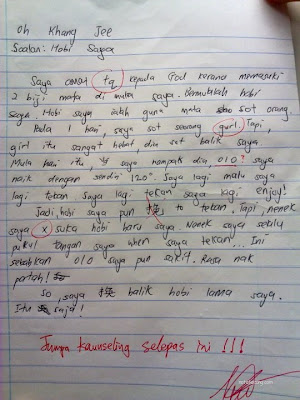 Oh Khang Jee
Soalan: Hobi Saya
Saya cakap tq kepada God kerana memberi
2 biji mata di muka saya. Bermulalah hobi
saya. Hobi saya ialah guna mata sot orang.
Pada 1 hari, saya sot seorang gurl. Tapi,
girl itu sangat hebat dia sot balik saya.
Mula hari itu, saya nampak dia 010? saya
naik dengan sendiri 120°. Saya lagi malu saya
lagi tekan saya lagi tekan saya lagi enjoy!
Jadi hobi saya pun 换 to tekan. Tapi, nenek
saya x suka hobi baru saya. Nenek saya selalu
pukul tangan saya when saya tekan... Ini
sebabkan 010 saya pun sakit. Rasa nak
patah!
So, saya 换 balik hobi lama saya.
Itu saja!
Jumpa kaunseling selepas ini !!!